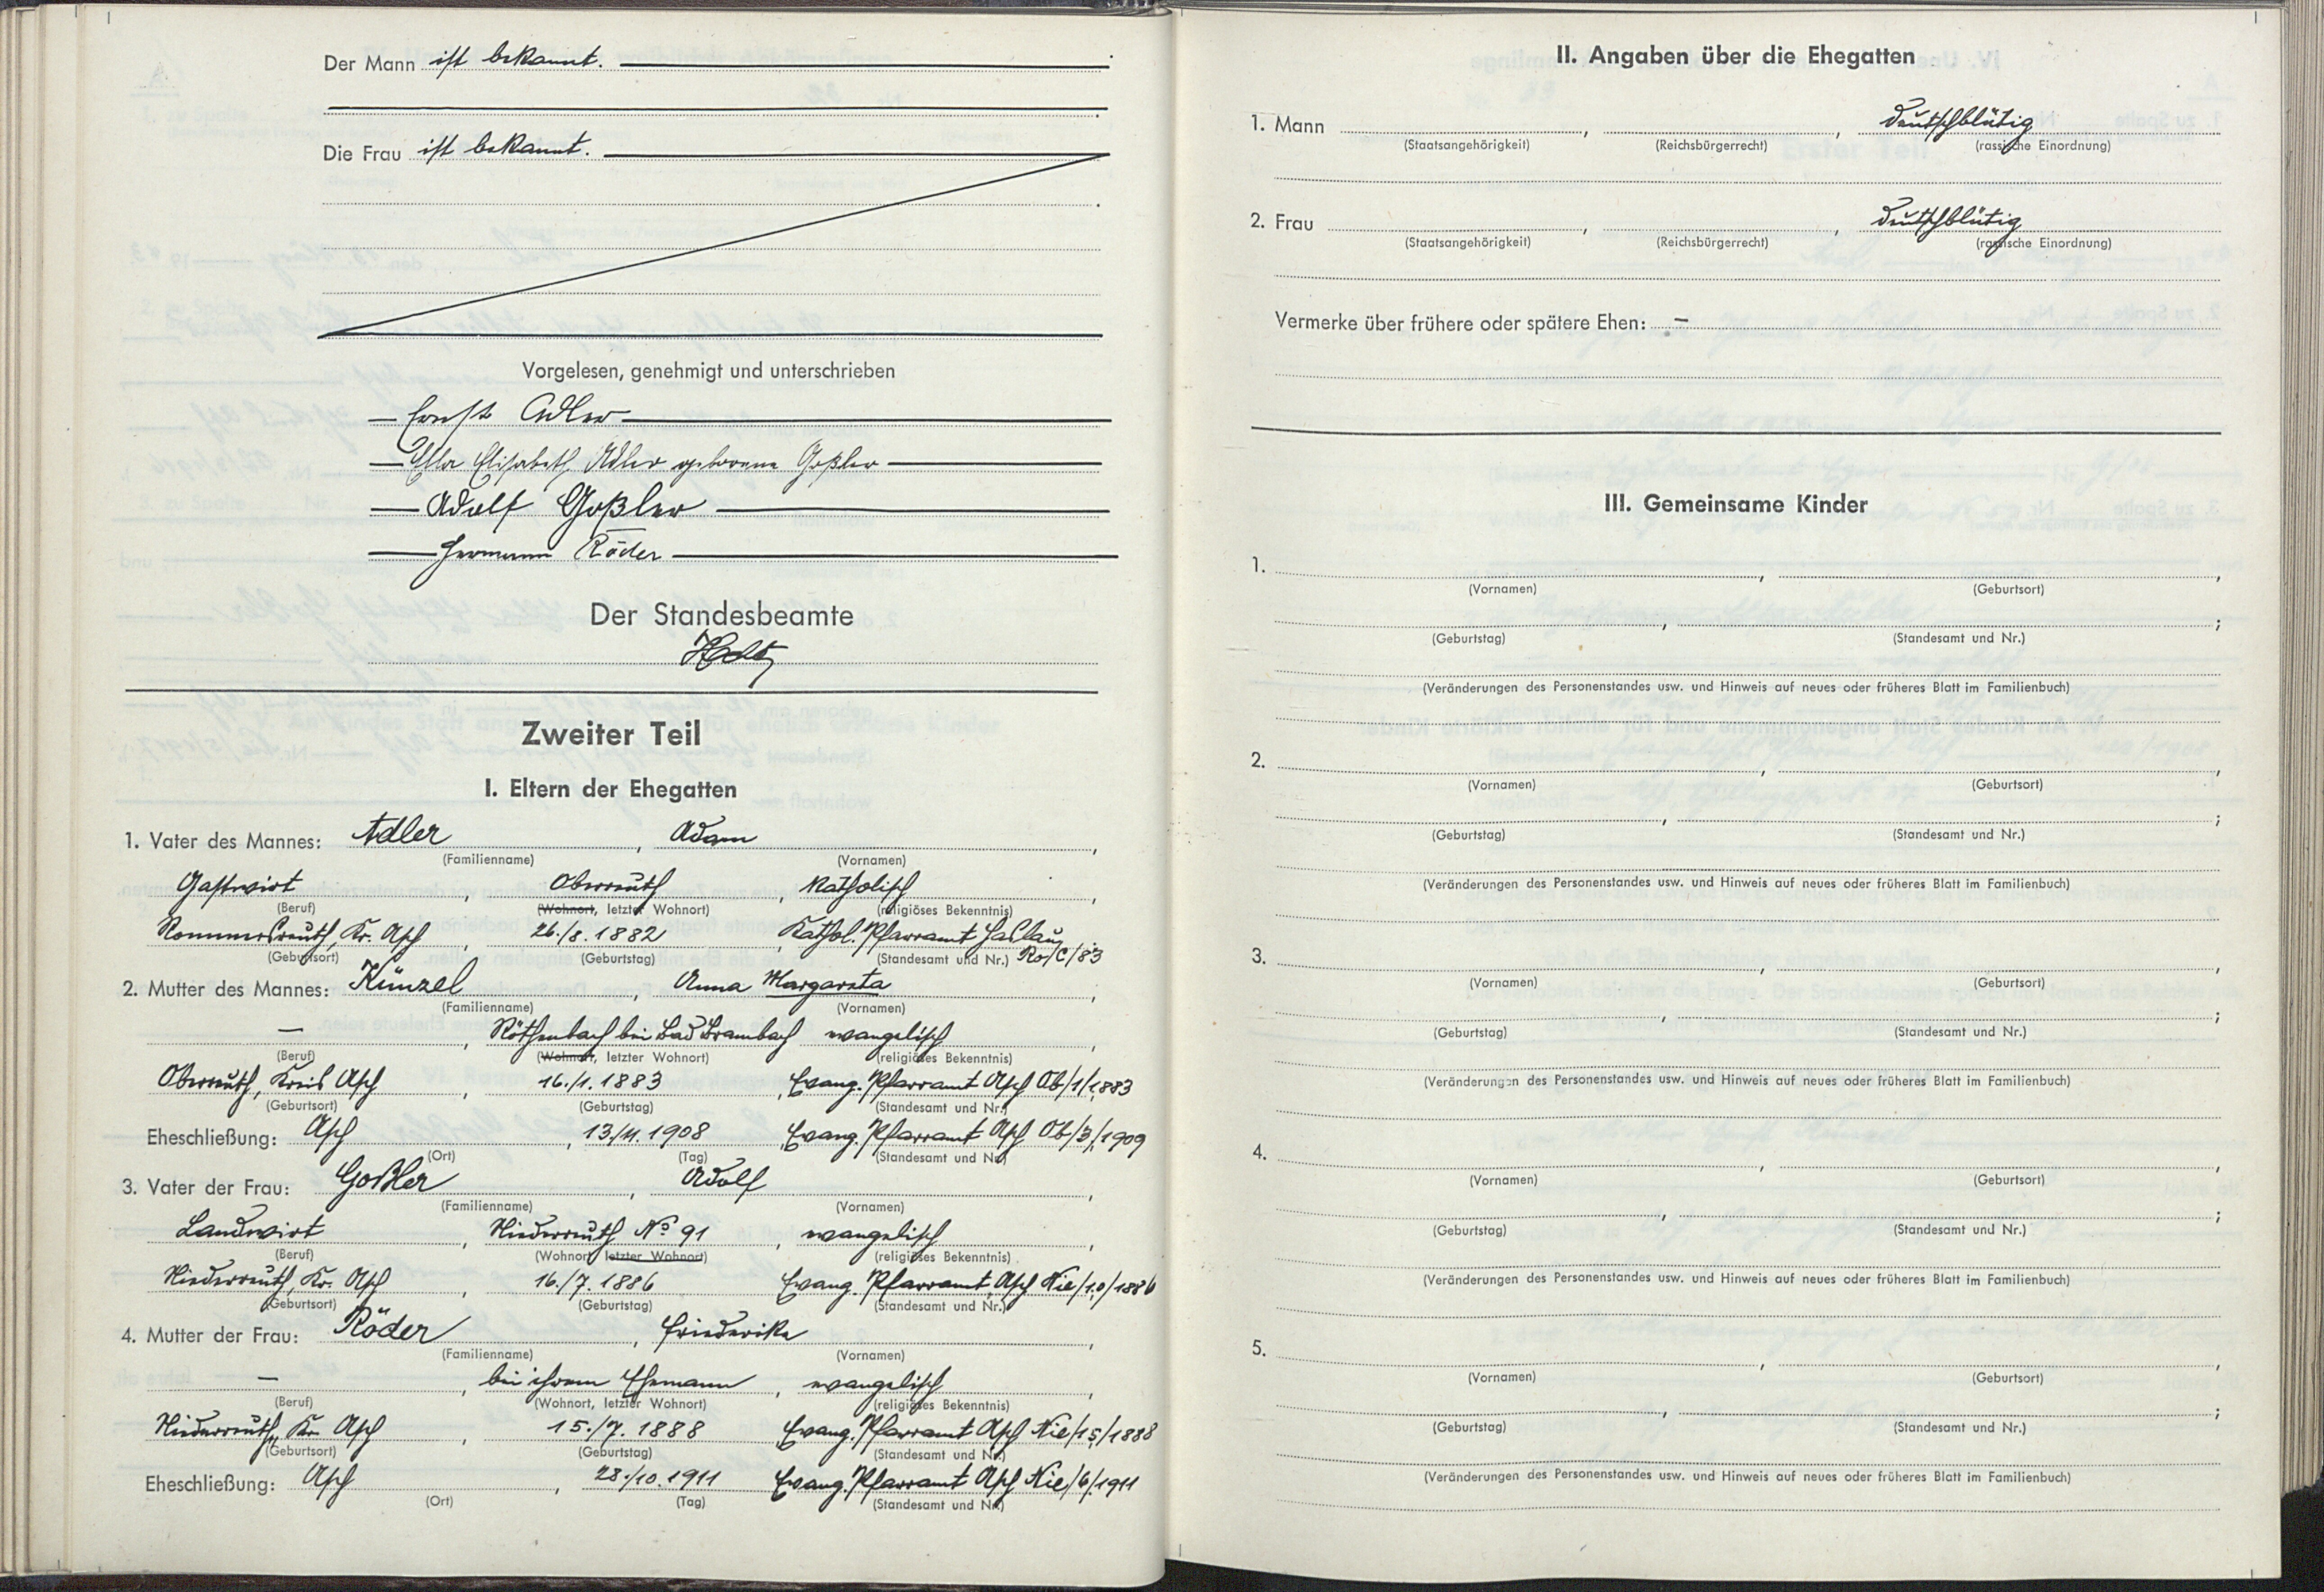 Der Mann ist bekannt.
Die Frau ist bekannt.
Vorgelesen, genehmigt und unterschrieben
Ernst Adler
Ella Elisabeth Adler geborene Goßler
Adolf Goßler
Hermann Röder
Der Standesbeamte
Zweiter Teil
I. Eltern der Ehegatten
1. Vater des Mannes: Adler, Adam,
(Familienname) (Vornamen)
Gastwirt, Oberreuth, katholisch,
(Beruf) (Wohnort, letzter Wohnort) (religiöses Bekenntnis)
Rommersreuth, Kr. Asch, 26./8.1882, Kathol. Pfarramt Haslau Ro/C/83
(Geburtsort) (Geburtstag) (Standesamt und Nr.)
2. Mutter des Mannes: Künzel, Anna Margareta,
(Familienname) (Vornamen)
–, Röthenbach bei Bad Brambach evangelisch,
(Beruf) (Wohnort, letzter Wohnort) (religiöses Bekenntnis)
Oberreuth, Kreis Asch, 16./1.1883, Evang. Pfarramt Asch Ob/1/1883
(Geburtsort) (Geburtstag) (Standesamt und Nr.)
Eheschließung: Asch, 13./11.1908, Evang. Pfarramt Asch Ob/3/1909
(Ort) (Tag) (Standesamt und Nr.)
3. Vater der Frau: Goßler, Adolf,
(Familienname) (Vornamen)
Landwirt, Niederreuth No 91, evangelisch,
(Beruf) (Wohnort, letzter Wohnort) (religiöses Bekenntnis)
Niederreuth, Kr. Asch, 16./7.1886 Evang. Pfarramt Asch Nie/10/1886
(Geburtsort) (Geburtstag) (Standesamt und Nr.)
4. Mutter der Frau: Röder, Friederike,
(Familienname) (Vornamen)
–, bei ihrem Ehemann, evangelisch,
(Beruf) (Wohnort, letzter Wohnort) (religiöses Bekenntnis)
Niederreuth, Kr. Asch, 15./7.1888 Evang. Pfarramt Asch Nie/15/1888
(Geburtsort) (Geburtstag) (Standesamt und Nr.)
Eheschließung: Asch, 28./10.1911 Evang. Pfarramt Asch Nie/6/1911
(Ort) (Tag) (Standesamt und Nr.)
II. Angaben über die Ehegatten
1. Mann , , deutschblütig
(Staatsangehörigkeit) (Reichsbürgerrecht) (rassische Einordnung)
2. Frau , , deutschblütig
(Staatsangehörigkeit) (Reichsbürgerrecht) (rassische Einordnung)
Vermerke über frühere oder spätere Ehen: –
III. Gemeinsame Kinder
1. , ,
(Vornamen) (Geburtsort)
, ;
(Geburtstag) (Standesamt und Nr.)
(Veränderungen des Personenstandes usw. und Hinweis auf neues oder früheres Blatt im Familienbuch)
2. , ,
(Vornamen) (Geburtsort)
, ;
(Geburtstag) (Standesamt und Nr.)
(Veränderungen des Personenstandes usw. und Hinweis auf neues oder früheres Blatt im Familienbuch)
3. , ,
(Vornamen) (Geburtsort)
, ;
(Geburtstag) (Standesamt und Nr.)
(Veränderungen des Personenstandes usw. und Hinweis auf neues oder früheres Blatt im Familienbuch)
4. , ,
(Vornamen) (Geburtsort)
, ;
(Geburtstag) (Standesamt und Nr.)
(Veränderungen des Personenstandes usw. und Hinweis auf neues oder früheres Blatt im Familienbuch)
5. , ,
(Vornamen) (Geburtsort)
, ;
(Geburtstag) (Standesamt und Nr.)
(Veränderungen des Personenstandes usw. und Hinweis auf neues oder früheres Blatt im Familienbuch)